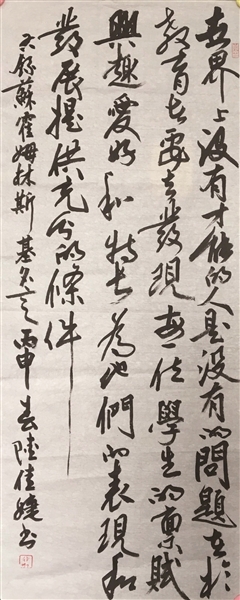 世界上没有才能的人是没有的問題在於
教育者要去發現每一位學生的稟賦
興趣愛好和特長為他們的表現和
發展提供充分的條件
右錄蘇霍姆林斯基名言丙申春陸佳書